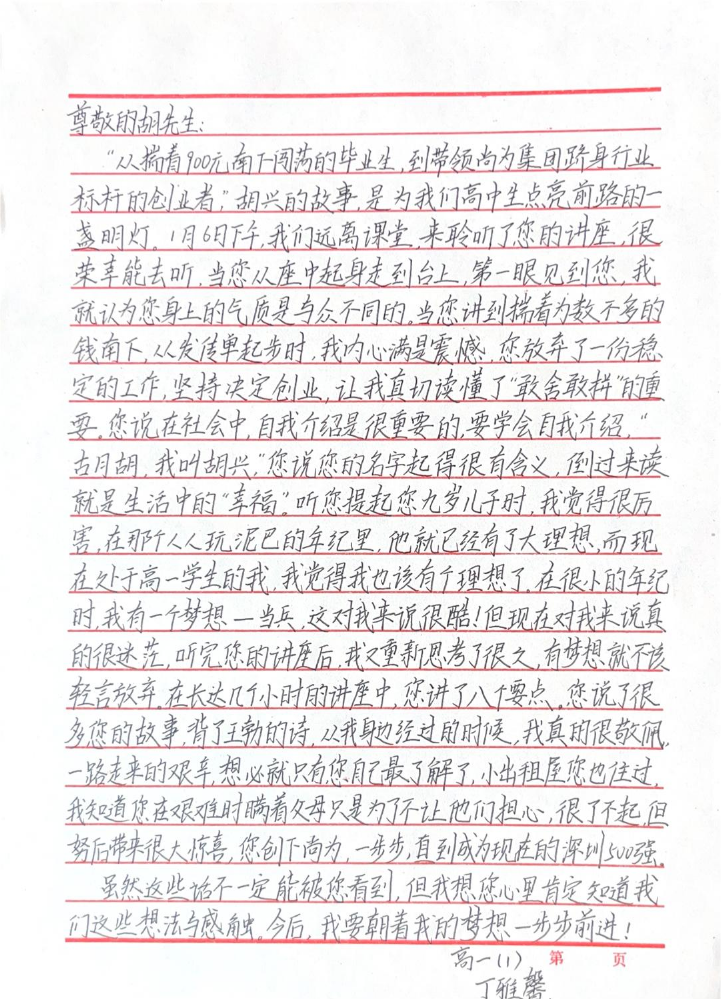 尊敬的胡先生:
“从揣着900元南下闯荡的毕业生,到带领尚为集团跻身行业
标杆的创业者,”胡兴的故事,是为我们高中生点亮前路的一
盏明灯。1月6日下午,我们远离课堂,来聆听了您的讲座,很
荣幸能去听,当您从座中起身走到台上,第一眼见到您,我
就认为您身上的气质是与众不同的。当您讲到揣着为数不多的
钱南下,从发传单起步时,我内心满是震憾,您放弃了一份稳
定的工作,坚持决定创业,让我真切读懂了“敢舍敢拼”的重
要。您说,在社会中,自我介绍是很重要的,要学会自我介绍,“
古月胡,我叫胡兴,”您说您的名字起得很有含义,倒过来读
就是生活中的“幸福”。听您提起您九岁儿子时,我觉得很厉
害,在那个人人玩泥巴的年纪里,他就已经有了大理想,而现
在处于高一学生的我,我觉得我也该有个理想了。在很小的年纪
时,我有一个梦想—当兵,这对我来说很酷!但现在对我来说真
的很迷茫,听完您的讲座后,我又重新思考了很久,有梦想就不该
轻言放弃。在长达几个小时的讲座中,您讲了八个要点,您说了很
多您的故事,背了王勃的诗,从我身边经过的时候,我真的很敬佩,
一路走来的艰辛,想必就只有您自己最了解了,小出租屋您也住过,
我知道您在艰难时瞒着父母只是为了不让他们担心,很了不起,但
努后带来很大惊喜,您创下尚为,一步步,直到成为现在的深圳500强。
虽然这些话不一定能被您看到,但我想您心里肯定知道我
们这些想法与感触。今后,我要朝着我的梦想一步步前进!
高一(1) 第 页
丁雅馨